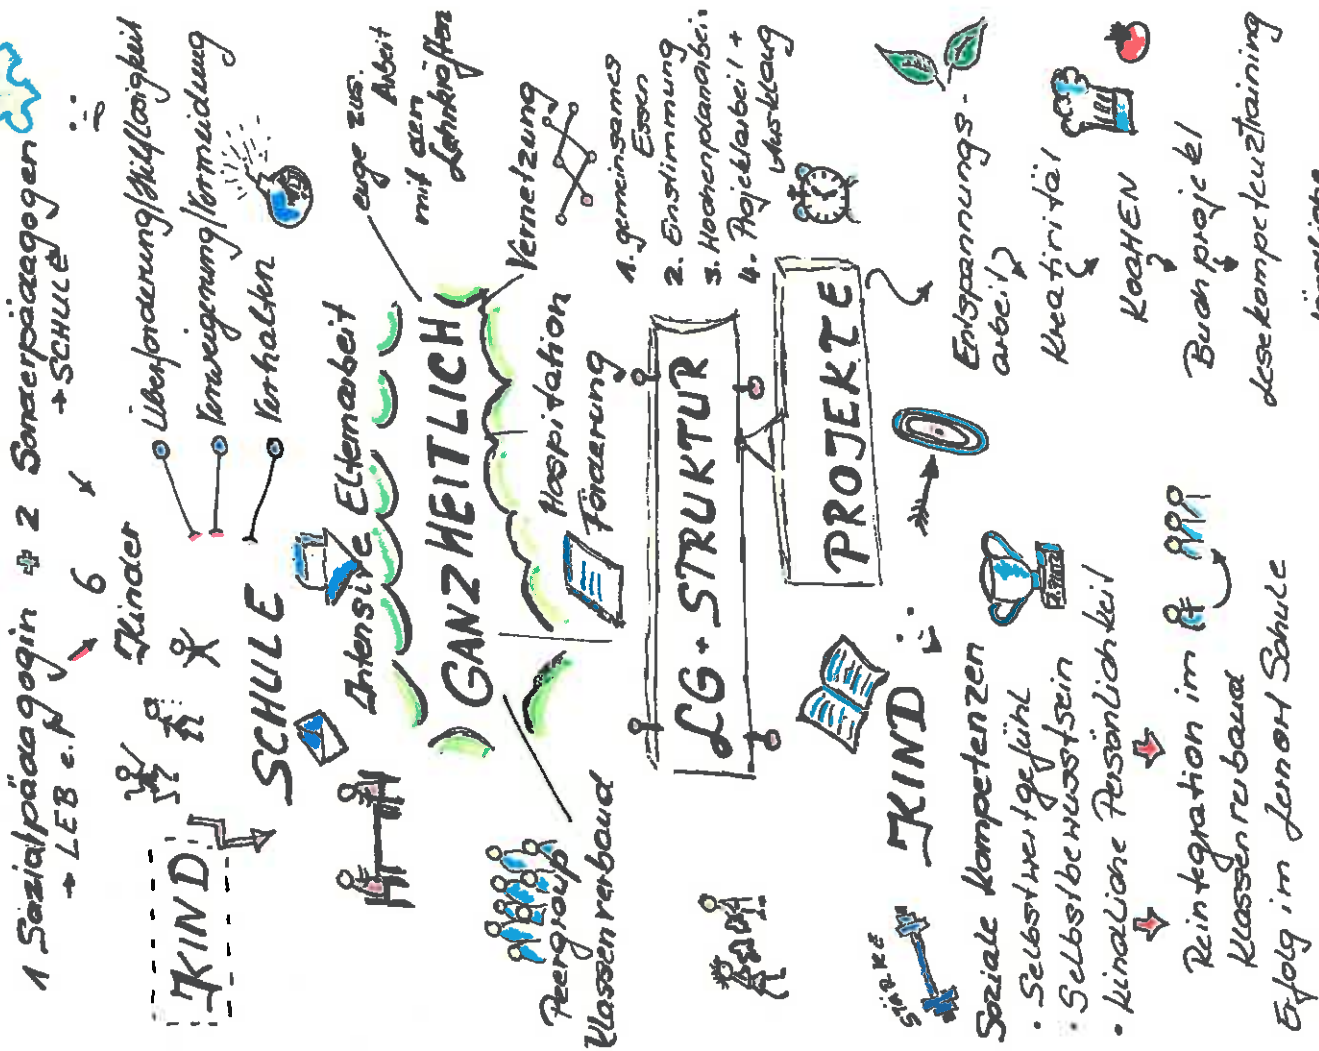 1 Sozialpädagogin + 2 Sonderpädagogen
→ LEB e.V
→ SCHULE
6
Kinder
KIND
SCHULE
Überforderung/Hilflosigkeit
Verweigerung/Vermeidung
Verhalten
Intensive Elternarbeit
GANZHEITLICH
enge zus.
Arbeit
mit den
Lehrkräften
Vernetzung
Hospitation
Förderung
Peergroup
Klassenverband
LG-STRUKTUR
1. gemeinsames
Essen
2. Einstimmung
3. Wochenplanarbeit
4. Projektarbeit +
Ausklang
PROJEKTE
Entspannungs-
arbeit
Kreativität
KOCHEN
Buchprojekt
Lesekompetenztraining
KIND
STÄRKE
Soziale Kompetenzen
• Selbstwertgefühl
• Selbstbewusstsein
• kindliche Persönlichkeit
Reintegration im
Klassenverband
Erfolg im Lernort Schule